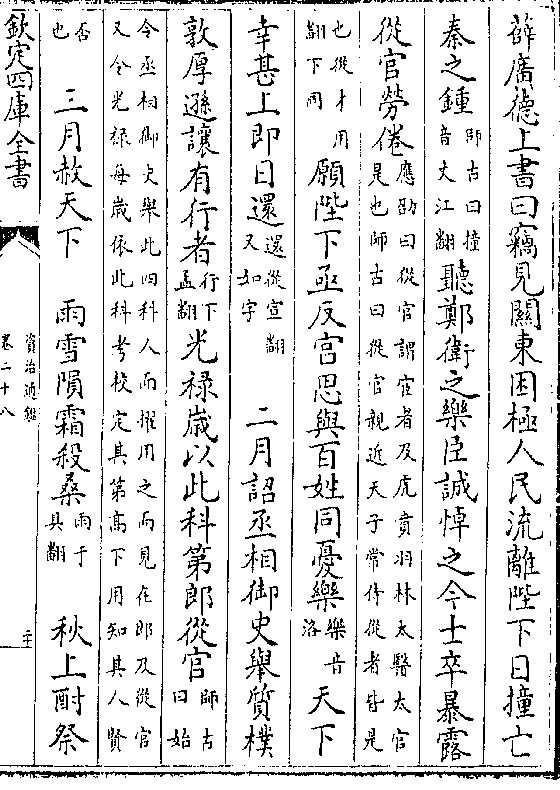 薛廣德上書曰竊見關東困極人民流離陛下日撞亡
秦之鍾師古曰撞音丈江翻聽鄭衛之樂臣誠悼之今士卒暴露
從官勞倦應劭曰從官謂宦者及虎賁羽林太醫太官是也師古曰從官親近天子常侍從者皆是
也從才用翻下同願陛下亟反宫思與百姓同憂樂樂音洛天下
幸甚上即日還還從宣翻又如字　二月詔丞相御史舉質樸
敦厚遜讓有行者行下孟翻光禄歳以此科第郎從官師古曰始
令丞相御史舉此四科人而擢用之而見在郎及從官又令光禄每歳依此科考校定其第高下用知其人賢
否也　三月赦天下　雨雪隕霜殺桑雨于具翻　秋上酎祭
欽定四庫全書
資治通鑑
卷二十八